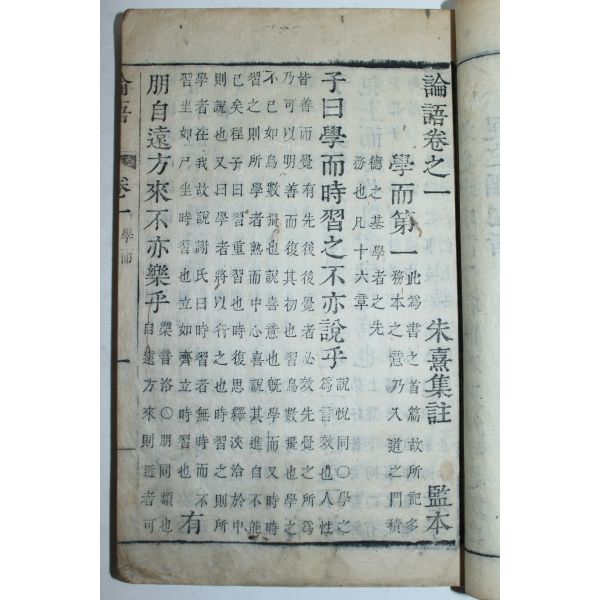 論語卷之一 朱熹集註 監本
學而第一 此為書之首篇故所記多
務本之意乃入道之門積
德之基學者之先
務也凡十六章
子曰學而時習之不亦說乎 說悅同○學之
為言效也人性
皆善而覺有先後後覺者必效先覺之所為
乃可以明善而復其初也習鳥數飛也學之
不已如鳥數飛也說喜意也旣學而又時時
習之則所學者熟而中心喜說其進自不能
已矣程子曰習重習也時復思繹浹洽於中
則說也又曰學者將以行之也時習之則所
學者在我故說謝氏曰時習者無時而不
習坐如尸坐時習也立如齊立時習也 有
朋自遠方來不亦樂乎 樂音洛○朋同類也
自遠方來則近者可
論語 卷一 學而 一